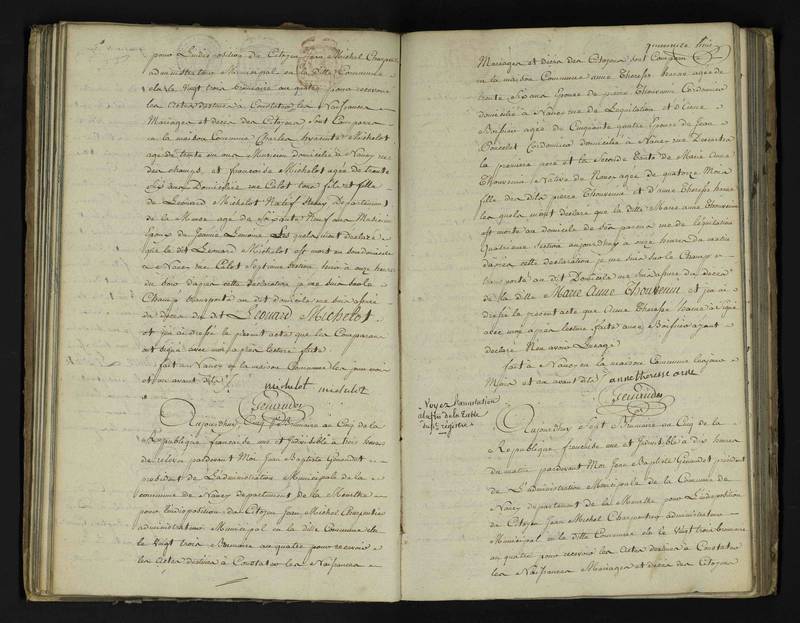 pour L'indisposition du Citoyen Jean Michel Charpentier
administrateur Municipal en la ditte Commune
elu le Vingt trois brumaire an quatre pour recevoir
les actes destinés à Constater les Naissances
Mariages et deces des Citoyens sont Comparu
en la maison Commune Charles hyacinte Michelot
agé de trente un ans Musicien domicilié à Nancy rue
des champs, et francois Michelot agé de trente
six ans domicilié rue Calot tous fils et fille
de Léonard Michelot Natif Departement
de la Meuse agé de Soixante Neuf ans Musicien
Epoux de Jeanne Lemoine Lesquels m'ont déclaré
que le dit Léonard Michelot est mort en son domicile
a Nancy rue Calot Septieme Section hier à onze heures
du soir d'après cette déclaration je me suis sur le
Champ transporté au dit domicile me suis assuré
du deces du dit Léonard Michelot
et j'en ai dressé le present acte que les Comparans
ont signé avec moi après lecture faite
fait à Nancy en la maison Commune les jour mois
et an avant dits
michelot michelot
Geaudot
Aujourdhuy Cinq Brumaire au Cinq de la
Republique francaise une et Indivisible à trois heures
de relevée pardevant Moi Jean Baptiste Geaudot
president de L'administration Municipale de la
commune de Nancy departement de la Meurthe
pour L'indisposition du Citoyen Jean Michel Charpentier
administrateur Municipal en la ditte Commune elu
le Vingt trois Brumaire an quatre pour recevoir
les actes destinés à Constater les Naissances
Mariages et deces des Citoyens sont Comparu
en la maison Commune anne Therese agée de
trente six ans Epouse de pierre Thouvenin Cordonnier
domiciliée à Nancy rue de Legislation et
Boissier agée de Cinquante quatre Epouse de Jean
Poncelet Cordonnier domiciliée à Nancy
la premiere mere et la Seconde tante de Marie Anne
Thouvenin Native de agée de quatorze Mois
fille du dit pierre Thouvenin et d'anne Therese
les quels m'ont déclaré que la ditte Marie anne Thouvenin
est morte au domicile de ses parens rue de legislation
Quatrieme Section aujourdhuy à onze heures du matin
d'après cette déclaration je me suis sur le Champ
transporté au dit Domicile me suis assuré du deces
de la ditte Marie Anne Thouvenin et j'en ai
dressé le present acte que Anne Therese a Signé
avec moi après lecture faite anne Boissier ayant
declaré Nen avoir L'usage
fait à Nancy en la maison Commune les jour
Mois et an avant dits anne therese
Geaudot
Voyez l'annotation
à la fin de la Table
du pt. régistre
Aujourdhuy Sept Brumaire au Cinq de la
Republique francaise une et Indivisible à dix heures
du matin pardevant Moi Jean Baptiste Geaudot president
de L'administration Municipale de la Commune de
Nancy departement de la Meurthe pour L'indisposition
du Citoyen Jean Michel Charpentier administrateur
Municipal en la ditte Commune elu le Vingt trois brumaire
an quatre pour recevoir les Actes destinés à Constater
les Naissances Mariages et deces des Citoyens